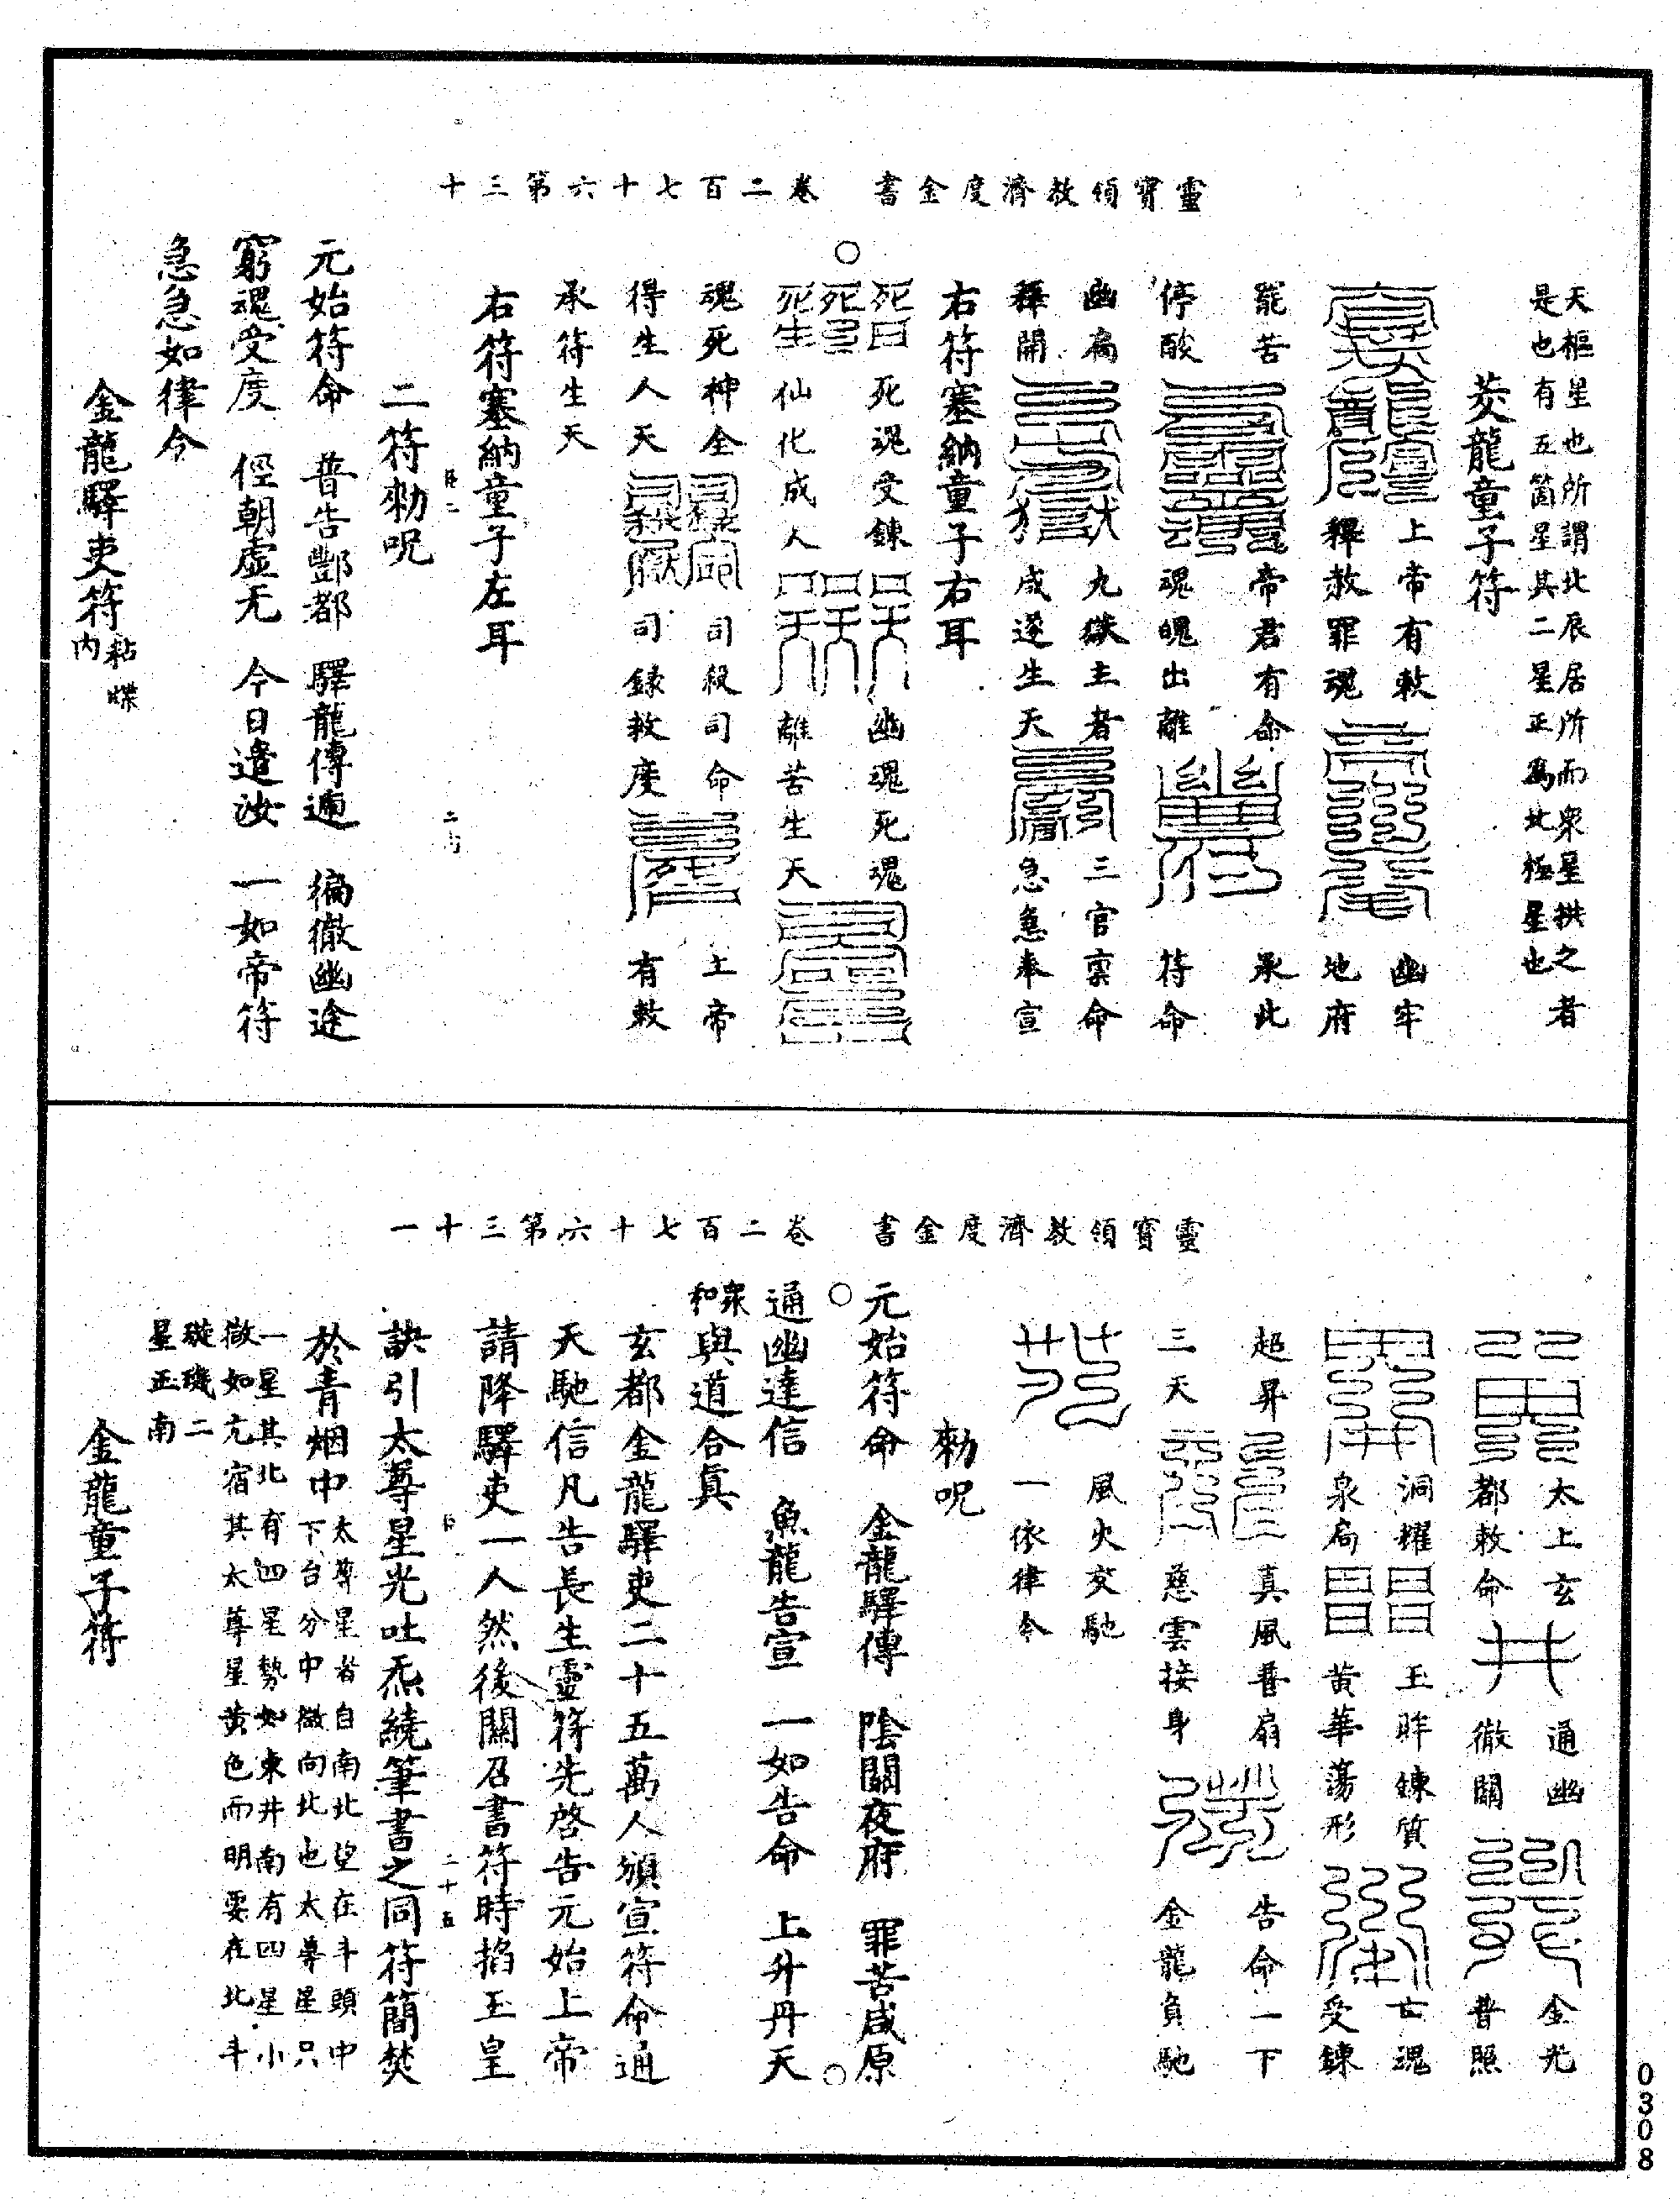 靈寶領教濟度金書　卷二百七十六第三十
天樞星也所謂北辰居所而衆星拱之者
是也有五箇星其二星正爲北極星也
茭龍童子符
上帝有敕　幽牢
釋赦罪魂　地府
罷苦　帝君有命　承此
停酸　魂魄出離　符命
幽扃　九獄主者　三官稟命
釋開　咸遂生天　急急奉宣
右符塞納童子右耳
○
死魂受鍊　幽魂死魂
仙化成人　離苦生天
魂死神全　司殺司命　上帝
得生人天　司錄救度　有敕
承符生天
右符塞納童子左耳
二符勑呪
元始符命　普告酆都　驛龍傳逓　徧徹幽途
窮魂受度　徑朝虛无　今日遣汝　一如帝符
急急如律令
金龍驛吏符粘牒內
靈寶領教濟度金書　卷二百七十六第三十一
太上玄　通幽　金光
都敕命　徹開　普照
洞耀　玉眸鍊質　亡魂
泉扃　黃華蕩形　受鍊
超昇　真風普扇　告命一下
三天　慈雲接身　金龍負馳
風火交馳
一依律令
勑呪
元始符命　金龍驛傳　陰關夜府　罪苦咸原
○通幽達信　魚龍告宣　一如告命　上升丹天○
衆和與道合眞
玄都金龍驛吏二十五萬人頒宣符命通
天馳信凡告長生靈符先啓告元始上帝
請降驛吏一人然後關召書符時掐玉皇
訣引太尊星光吐炁繞筆書之同符簡焚
於青烟中太尊星者自南北望在斗頭中
下台分中微向北也太尊星只
一星其北有四星勢如東井南有四星小
微如亢宿其太尊星黃色而明要在北斗
璇璣二
星正南
金龍童子符
0308